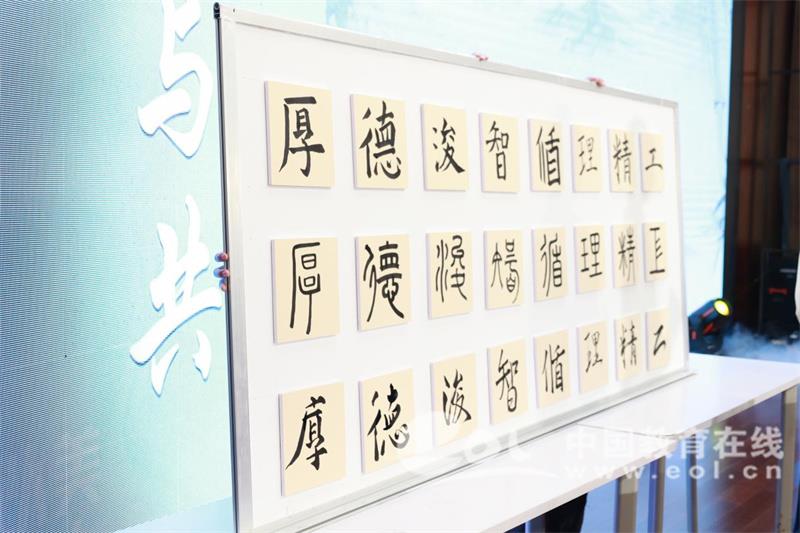 与
共
厚德浚智循理精工
厚德浚智循理精工
厚德浚智循理精工
eol 中国教育在线
www.eol.cn